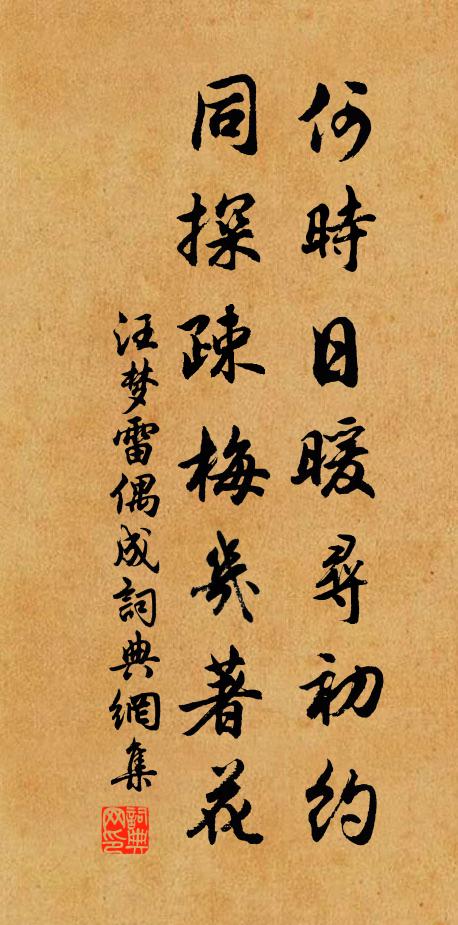 何時日暖尋初約
同探疎梅幾著花
汪梦雷偶成詞典網集
詞典网印